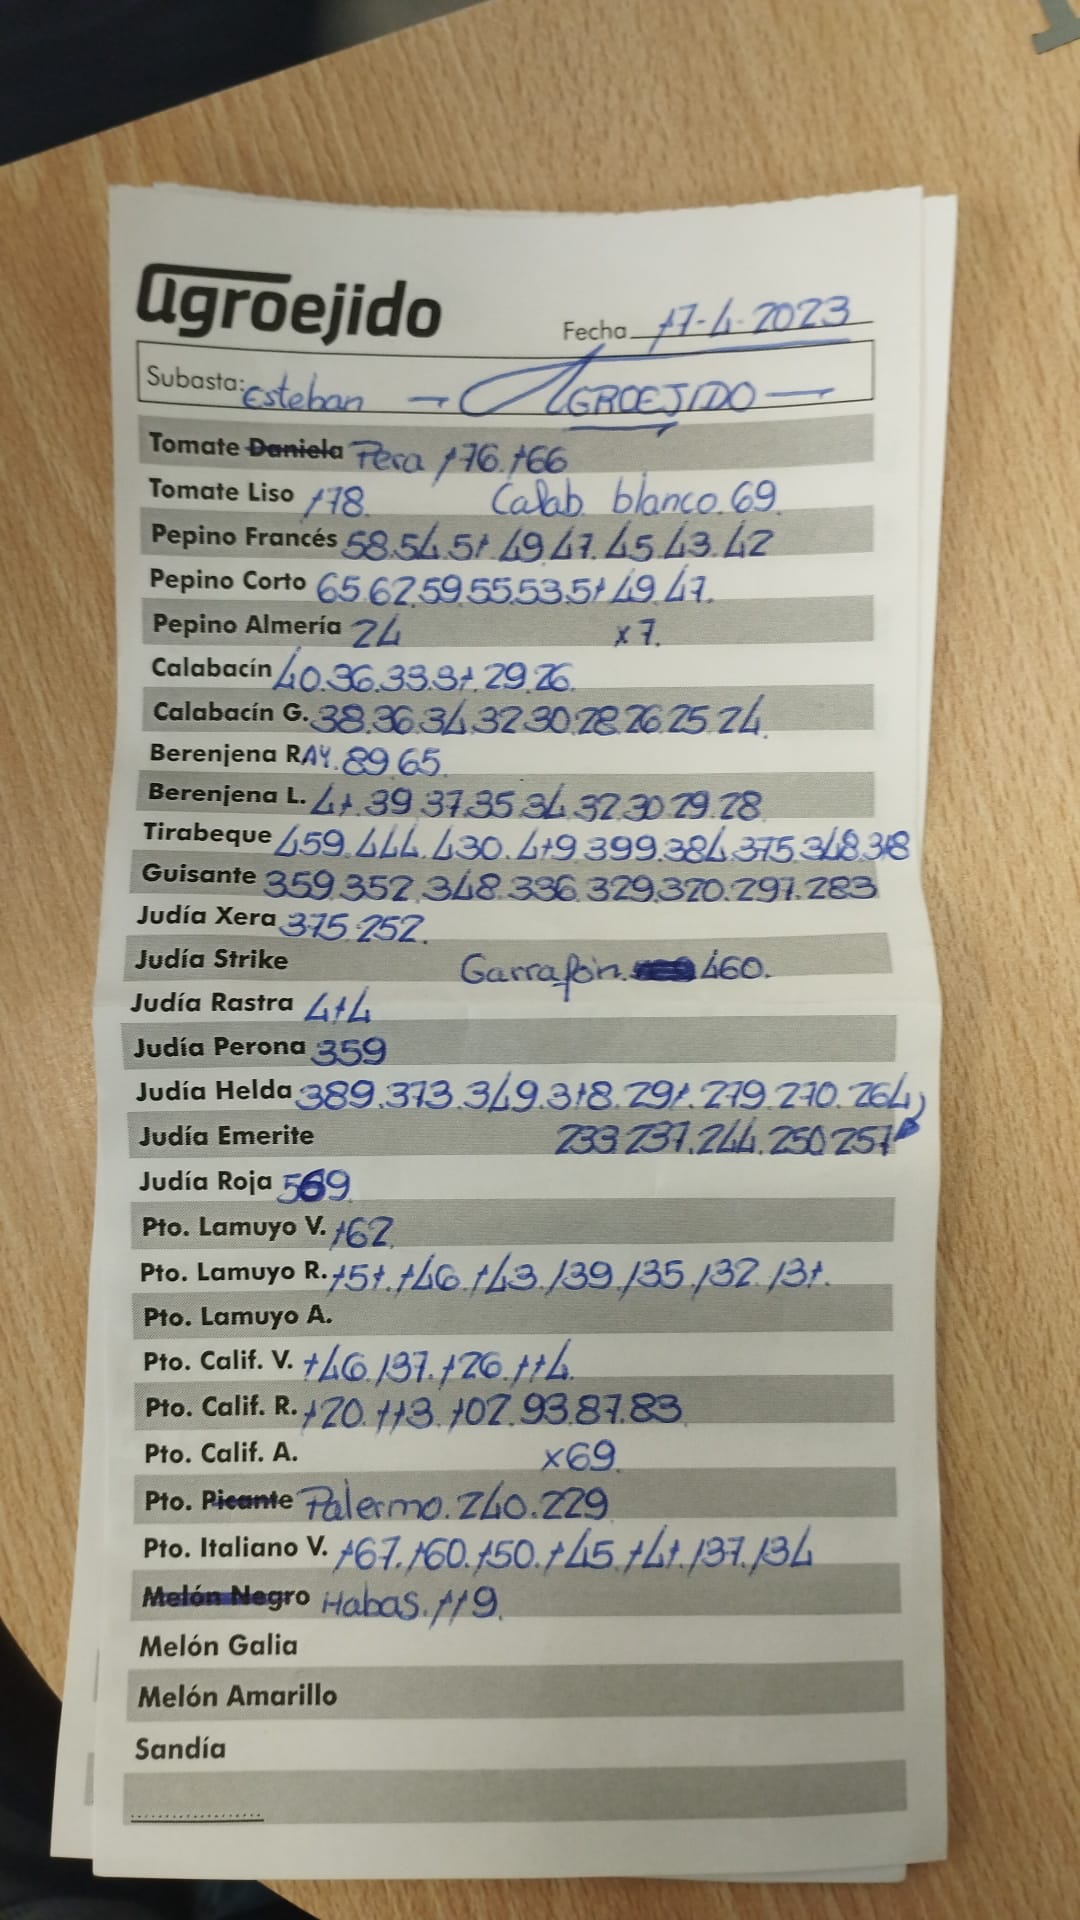 agroejido
Fecha 17-4-2023
Subasta: Esteban → AGROEJIDO —
Tomate Daniela Pera 176.166
Tomate Liso 178. Calab. blanco.69.
Pepino Francés 58.54.51.49.47.45.43.42
Pepino Corto 65.62.59.55.53.51.49.47.
Pepino Almería 24 x7.
Calabacín 40.36.33.31.29.26.
Calabacín G. 38.36.34.32.30.28.26.25.24.
Berenjena RAY. 89.65.
Berenjena L. 41.39.37.35.34.32.30.29.28
Tirabeque 459.444.430.419.399.384.375.348.318
Guisante 359.352.348.336.329.320.297.283
Judía Xera 375.252.
Judía Strike Garrafón. 460.
Judía Rastra 414
Judía Perona 359
Judía Helda 389.373.349.318.291.279.270.264
Judía Emerite 233.237.244.250.257
Judía Roja 569.
Pto. Lamuyo V. 162.
Pto. Lamuyo R. 151.146.143.139.135.132.131.
Pto. Lamuyo A.
Pto. Calif. V. 146.137.126.114.
Pto. Calif. R. 120.113.102.93.87.83
Pto. Calif. A. x69.
Pto. Picante Palermo.240.229
Pto. Italiano V. 167.160.150.145.141.137.134
Melón Negro Habas.119.
Melón Galia
Melón Amarillo
Sandía